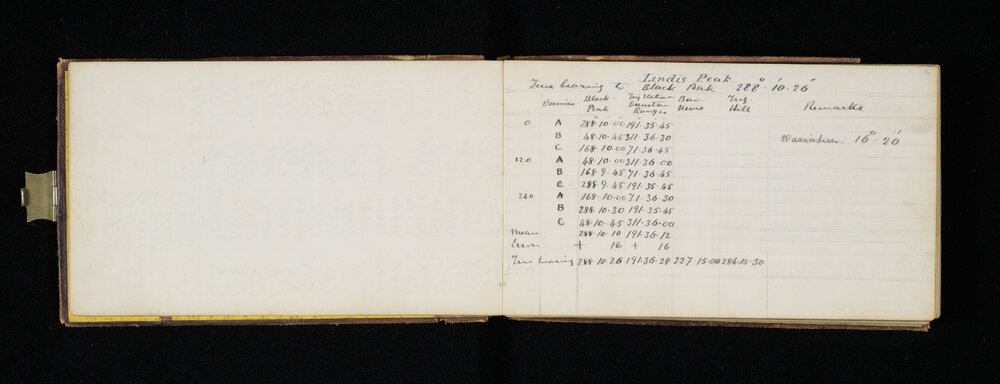 2
Lindis Peak
True bearing to Black Peak 288° 10' 26"
Vernier Black Peak Trig Station Dunstan Ranges Ben Nevis Trig Hill Remarks
0 A 288·10·00 191·35·45
B 48·10·45 311·36·30 Variation 16° 20'
C 168·10·00 71·36·45
120 A 48·10·00 311·36·00
B 168·9·45 71·36·45
C 288·9·45 191·35·45
240 A 168·10·00 71·36·30
B 288·10·30 191·35·45
C 48·10·45 311·36·00
Mean 288·10·10 191·36·12
Error + 16 + 16
True bearing 288·10·26 191·36·28 227 15·00 284·15·30